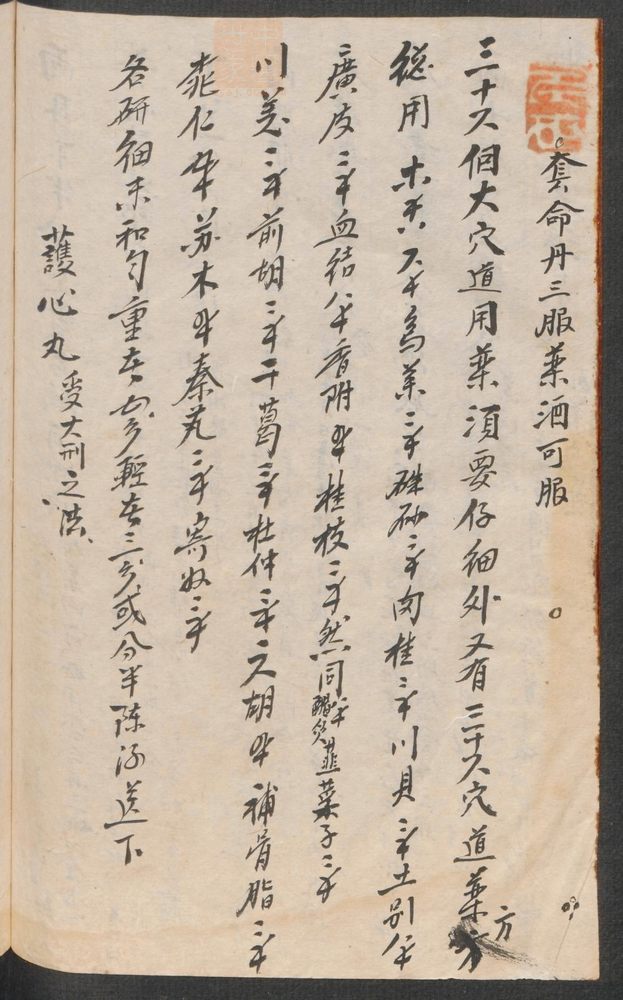 奪命丹三服藥酒可服
三十六個大穴道用藥須要仔細外又有三十六穴道藥方
總用 木香 六錢 烏藥 三錢 硃砂 三錢 肉桂 二錢 川貝 三錢 土別
廣皮 二錢 血結 香附 桂枝 二錢 然同 醋炙 韮菜子 二錢
川羌 二錢 前胡 三錢 干葛 三錢 杜仲 二錢 元胡 補骨脂 二錢
桃仁 蘇木 秦艽 二錢 寄奴 二錢
各研細末和勻重者 輕者三分或分半陳酒送下
護心丸 受大刑之法